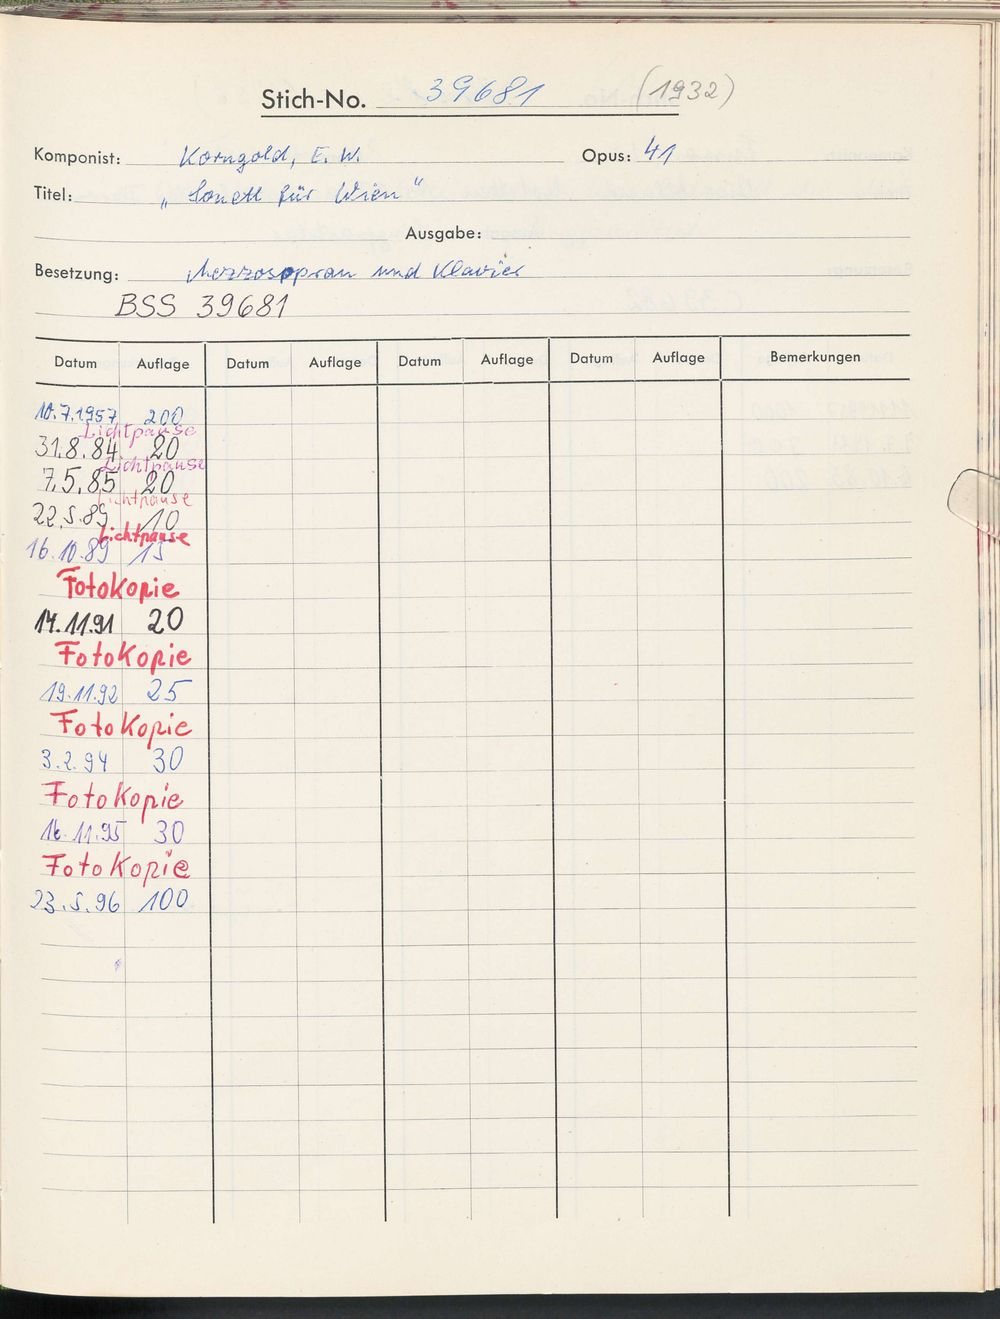 Stich-No. 39681 (1932)
Komponist: Korngold, E. W. Opus: 41
Titel: „Sonett für Wien“
Ausgabe:
Besetzung: Mezzosopran und Klavier
BSS 39681
Datum Auflage Datum Auflage Datum Auflage Datum Auflage Bemerkungen
10.7.1957 200
Lichtpause
31.8.84 20
Lichtpause
7.5.85 20
Lichtpause
22.5.89 10
Lichtpause
16.10.89 15
Fotokopie
14.11.91 20
Fotokopie
19.11.92 25
Fotokopie
3.2.94 30
Fotokopie
16.11.95 30
Fotokopie
23.5.96 100